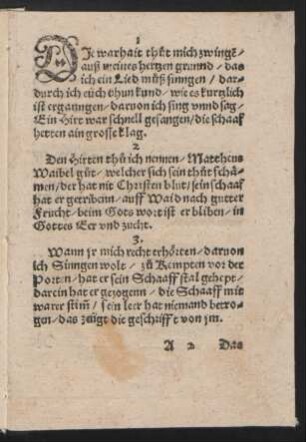 1
DJe warhait thůt mich zwingẽ/
auß meines hertzen grunnd/ das
ich ein Lied můß sinngen/ dar-
durch ich euch thun kund/ wie es kurtzlich
ist erganngen/ daruon ich sing vnnd sag/
Ein Hirt war schnell gefangen/ die schaaf
hetten ain grosse klag.
2
Den Hirten thů ich nennen/ Mattheus
Waibel gůt/ welcher sich sein thůt schä-
men/ der hat nie Christen blut/ sein schaaf
hat er getriben/ auff Waid nach gutter
Frucht/ beim Gots wort ist er bliben/ in
Gottes Eer vnd zucht.
3.
Wann jr mich recht erhörten/ daruon
ich Sinngen wolt/ zů Kempten vor der
Porten/ hat er sein Schaaff stal gehept/
darein hat er gezogenn/ die Schaaff mit
warer stim̃/ sein leer hat niemand betro-
gen/ das zeügt die geschrifft von jm.
A 2 Das